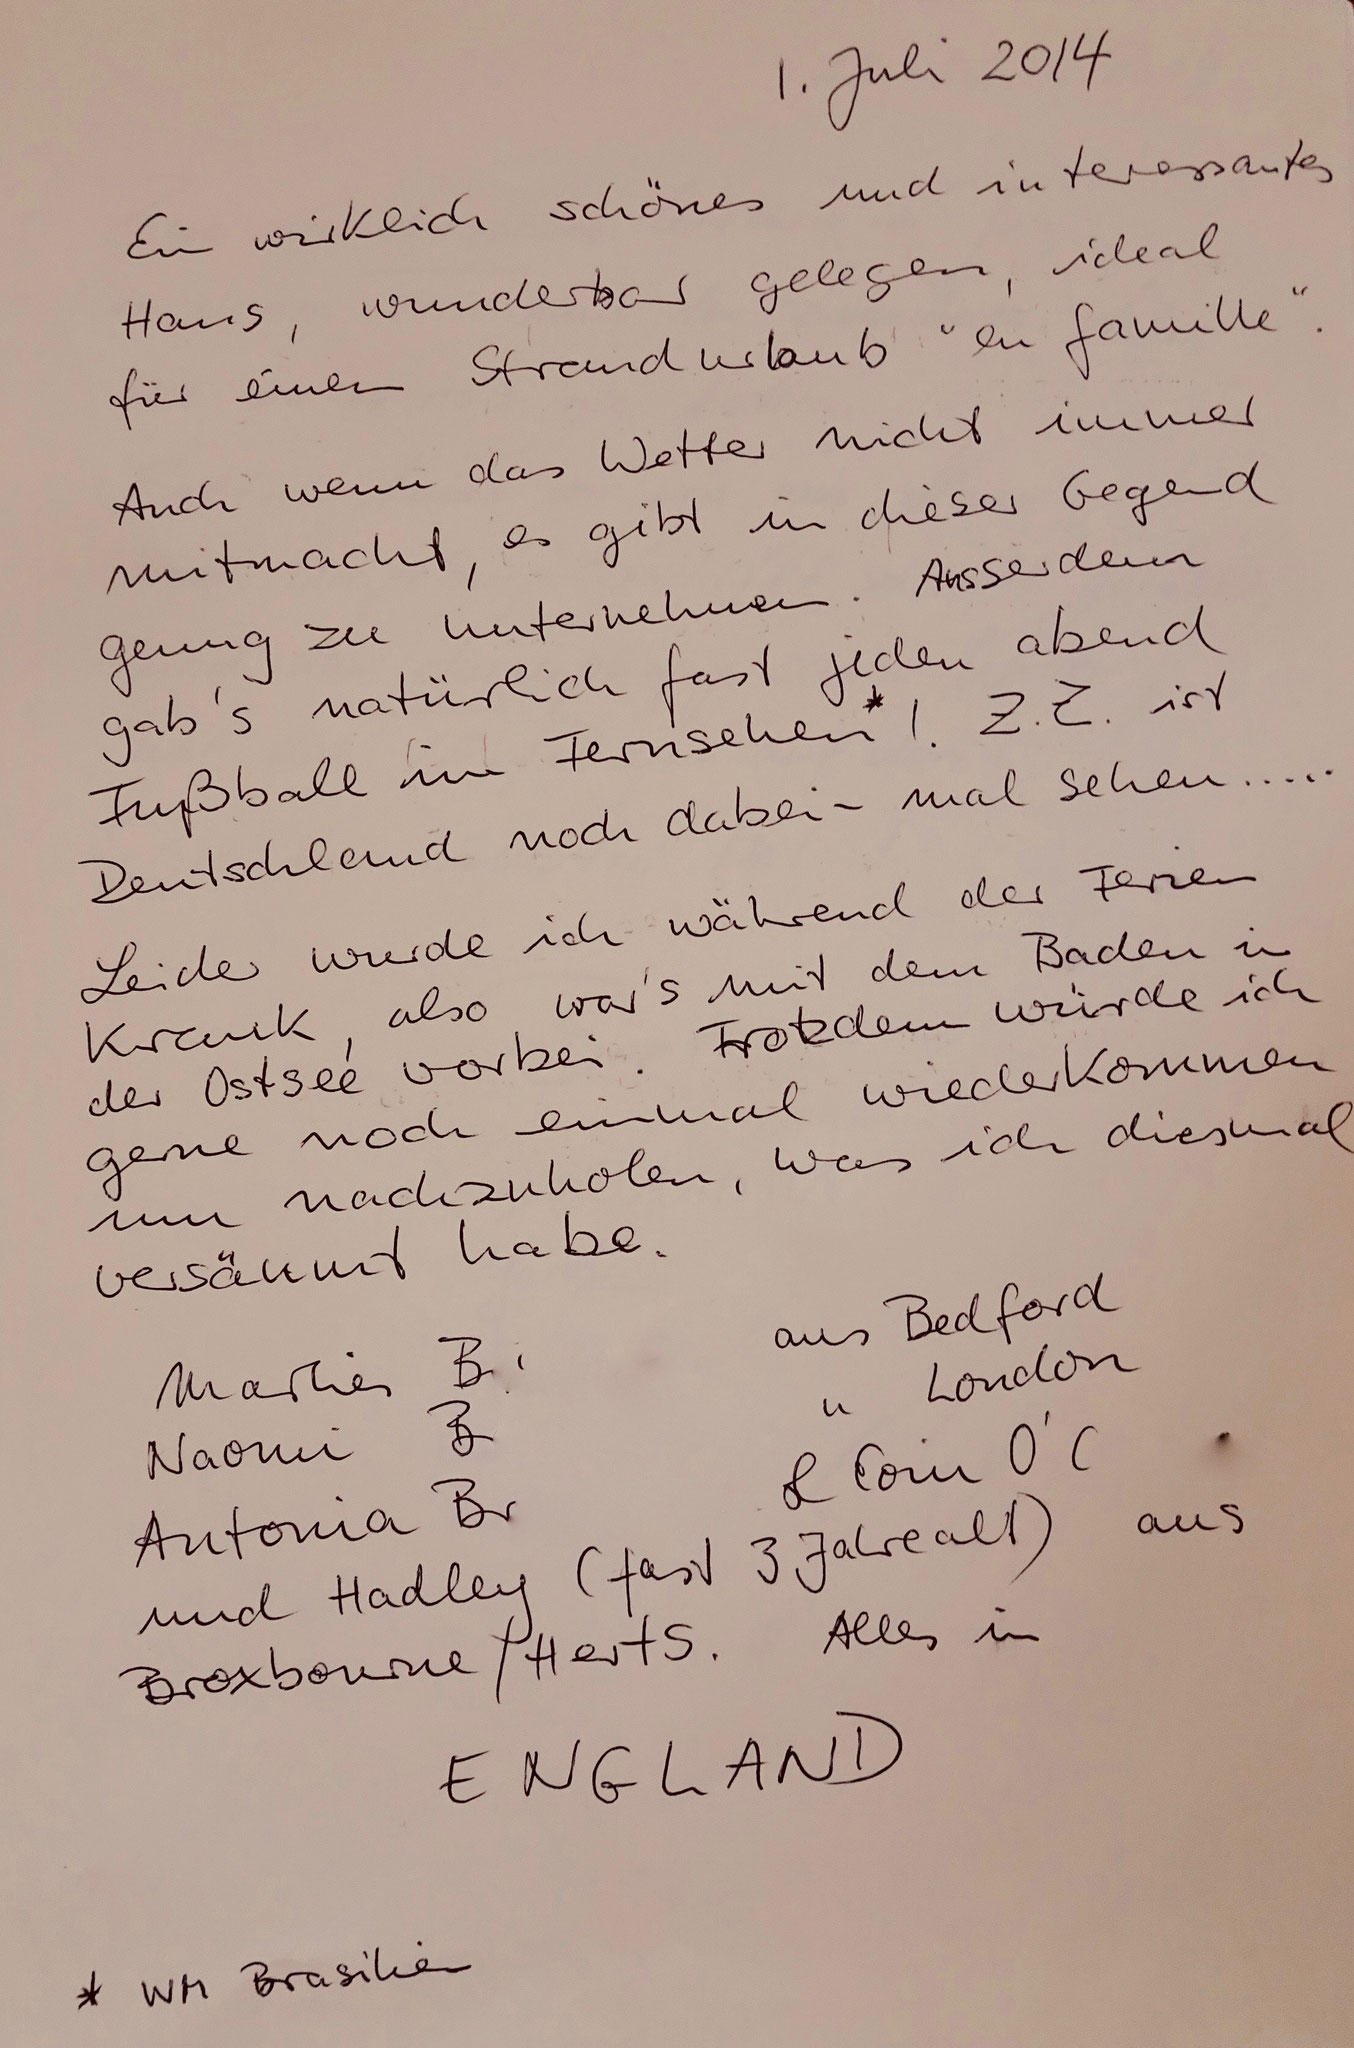 1. Juli 2014
Ein wirklich schönes und interessantes
Haus, wunderbar gelegen, ideal
für einen Strandurlaub "en famille".
Auch wenn das Wetter nicht immer
mitmacht, es gibt in dieser Gegend
genug zu unternehmen. Ausserdem
gab's natürlich fast jeden abend
Fußball im Fernsehen*! Z.Z. ist
Deutschland noch dabei - mal sehen.....
Leider wurde ich während der Ferien
krank, also war's mit dem Baden in
der Ostsee vorbei. Trotzdem würde ich
gerne noch einmal wiederkommen
um nachzuholen, was ich diesmal
versäumt habe.
Marlies B. aus Bedford
Naomi B " London
Antonia Br & Eoin O'C
und Hadley (fast 3 Jahre alt) aus
Broxbourne/Herts. Alles in
ENGLAND
* WM Brasilien